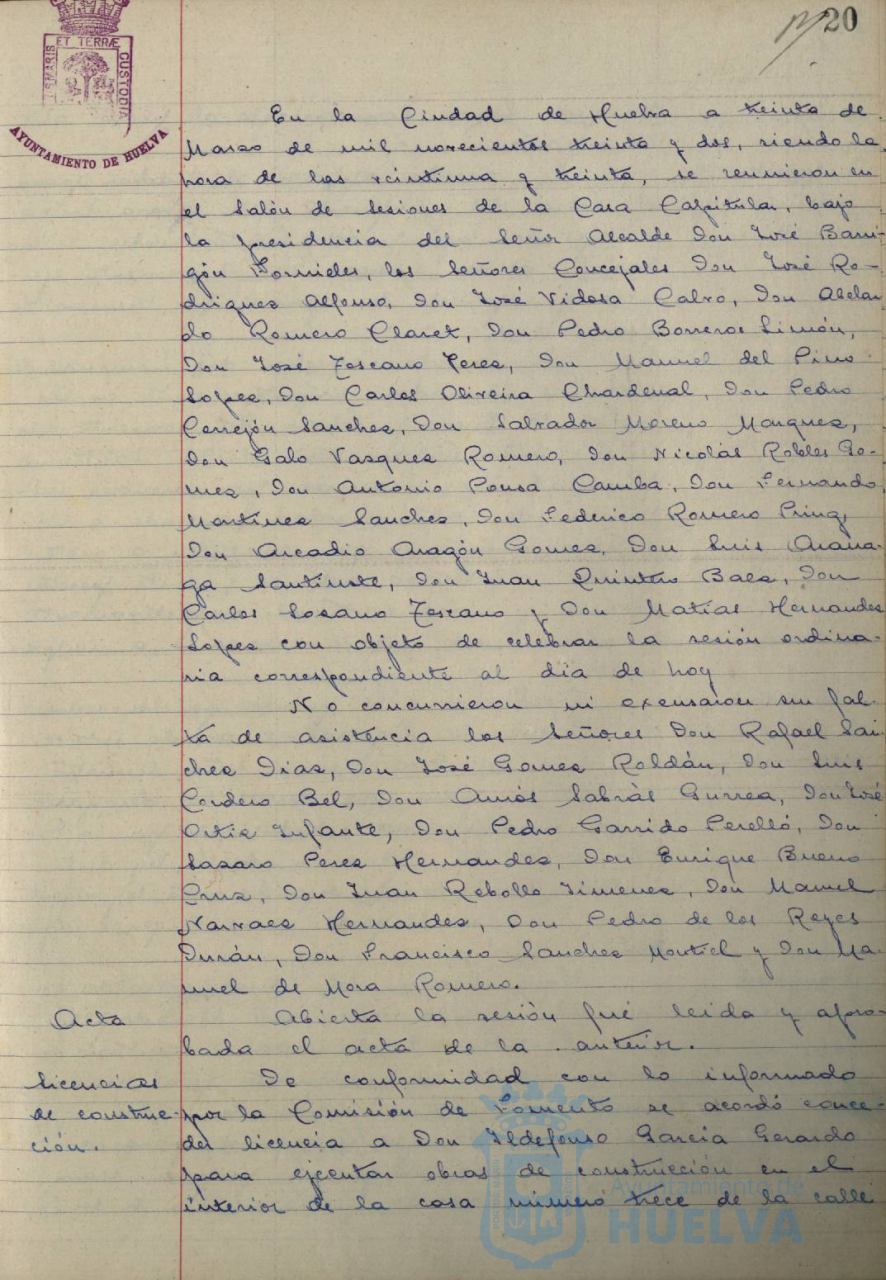 20
ET TERRÆ
S MARIS
CUSTODIA
AYUNTAMIENTO DE HUELVA
En la Ciudad de Huelva a treinta de
Marzo de mil novecientos treinta y dos, siendo la
hora de las veintiuna y treinta, se reunieron en
el Salón de Sesiones de la Casa Capitular, bajo
la presidencia del Señor Alcalde Don José Barri-
gón Fornieles, los Señores Concejales Don José Ro-
driguez Alfonso, Don José Vidosa Calvo, Don Abelar
do Romero Claret, Don Pedro Borrero Limón,
Don José Toscano Perez, Don Manuel del Pino
Lopez, Don Carlos Oliveira Chardenal, Don Pedro
Cerrejón Sanchez, Don Salvador Moreno Marquez,
Don Galo Vazquez Romero, Don Nicolás Robles Go-
mez, Don Antonio Pousa Camba, Don Fernando
Martinez Sanchez, Don Federico Romero Pring,
Don Arcadio Aragón Gomez, Don Luis
ga Don Juan Quintero Baez, Don
Carlos Lozano Toscano y Don Matías Hernandez
Lopez con objeto de celebrar la sesión ordina-
ria correspondiente al dia de hoy
No concurrieron ni excusaron su fal-
ta de asistencia los Señores Don Rafael San
chez Diaz, Don José Gomez Roldán, Don Luis
Cordero Bel, Don Amós Sabrás Gurrea, Don José
Ortiz Infante, Don Pedro Garrido Perelló, Don
Lazaro Perez Hernandez, Don Enrique Bueno
Cruz, Don Juan Rebollo Jimenez, Don Manuel
Narvaez Hernandez, Don Pedro de los Reyes
Durán, Don Francisco Sanchez Montiel y Don Ma-
nuel de Mora Romero.
Acta
Abierta la sesión fué leida y apro-
bada el acta de la anterior.
Licencias
de construc-
ción.
De conformidad con lo informado
por la Comisión de Fomento se acordó conce-
der licencia a Don Ildefonso García Gerardo
para ejecutar obras de construcción en el
interior de la casa número trece de la calle
Ayuntamiento de
HUELVA